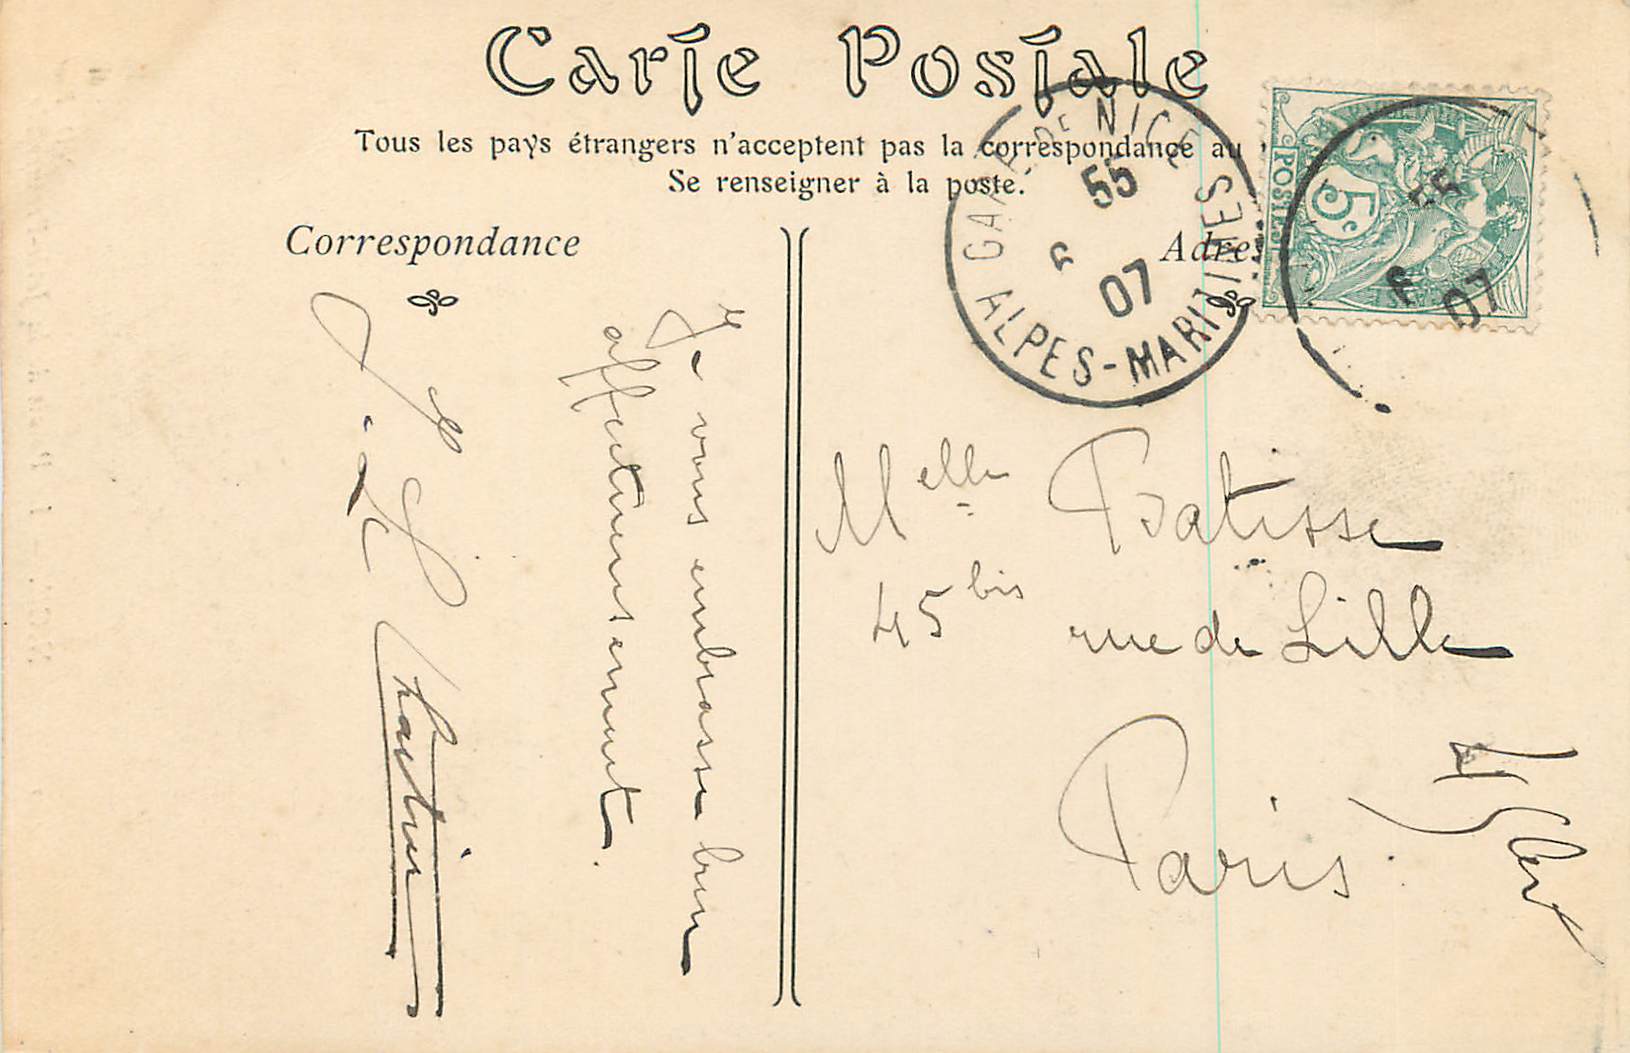 Carte Postale
Tous les pays étrangers n'acceptent pas la correspondance au
Se renseigner à la poste.
Correspondance
Adre
GARE DE NICE
55
07
ALPES-MARITIMES
POSTES
5c
07
Je vous embrasse bien
affectueusement.
Melle Batisse
45 bis rue de Lille
Paris.